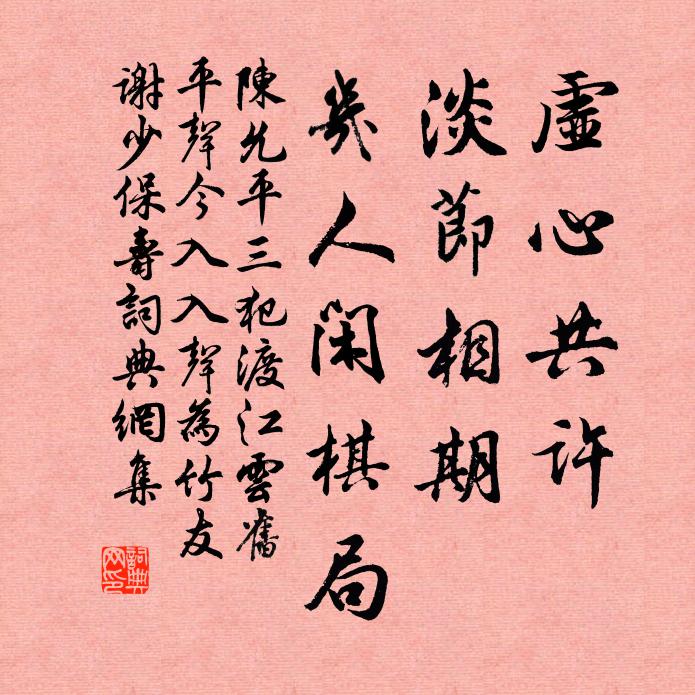 虛心共許
淡節相期
幾人閑棋局
陳允平三犯渡江雲舊
平聲今入入聲為竹友
謝少保壽詞典網集
詞典網印